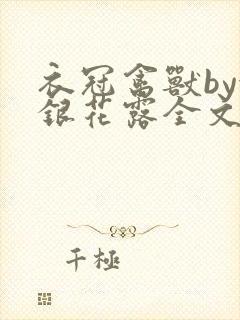 衣冠禽獸by
銀花露全文
千極